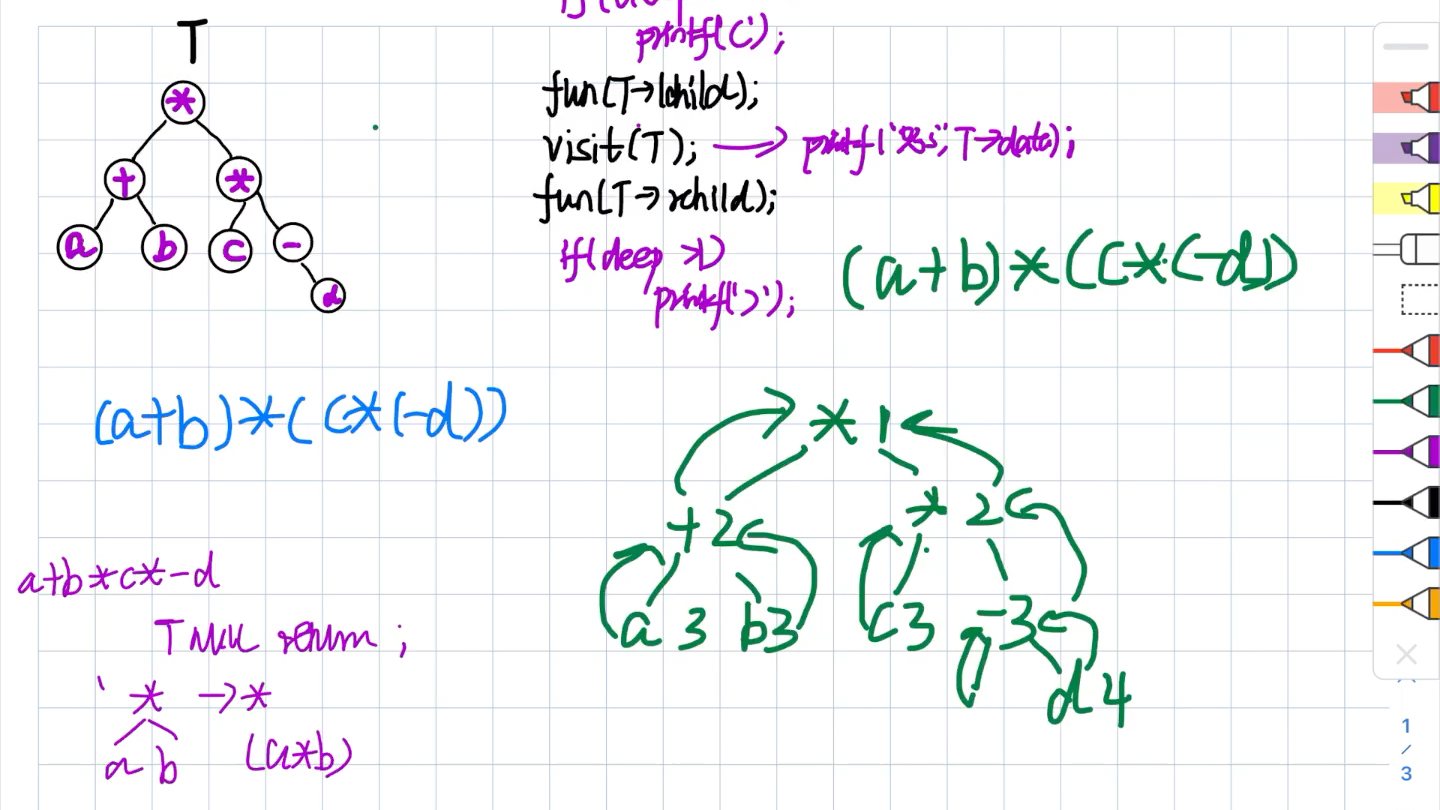 T
*
+ *
a b c -
d
printf('(');
fun(T→lchild);
visit(T); → printf("%s", T→data);
fun(T→rchild);
if(deep >1)
printf(')');
(a+b)*(C*(-d))
(a+b)*(C*(-d))
* 1
+2 * 2
a 3 b3 C3 -3
d 4
a+b*c*-d
T NULL return ;
* → *
a b (a*b)
1
/
3